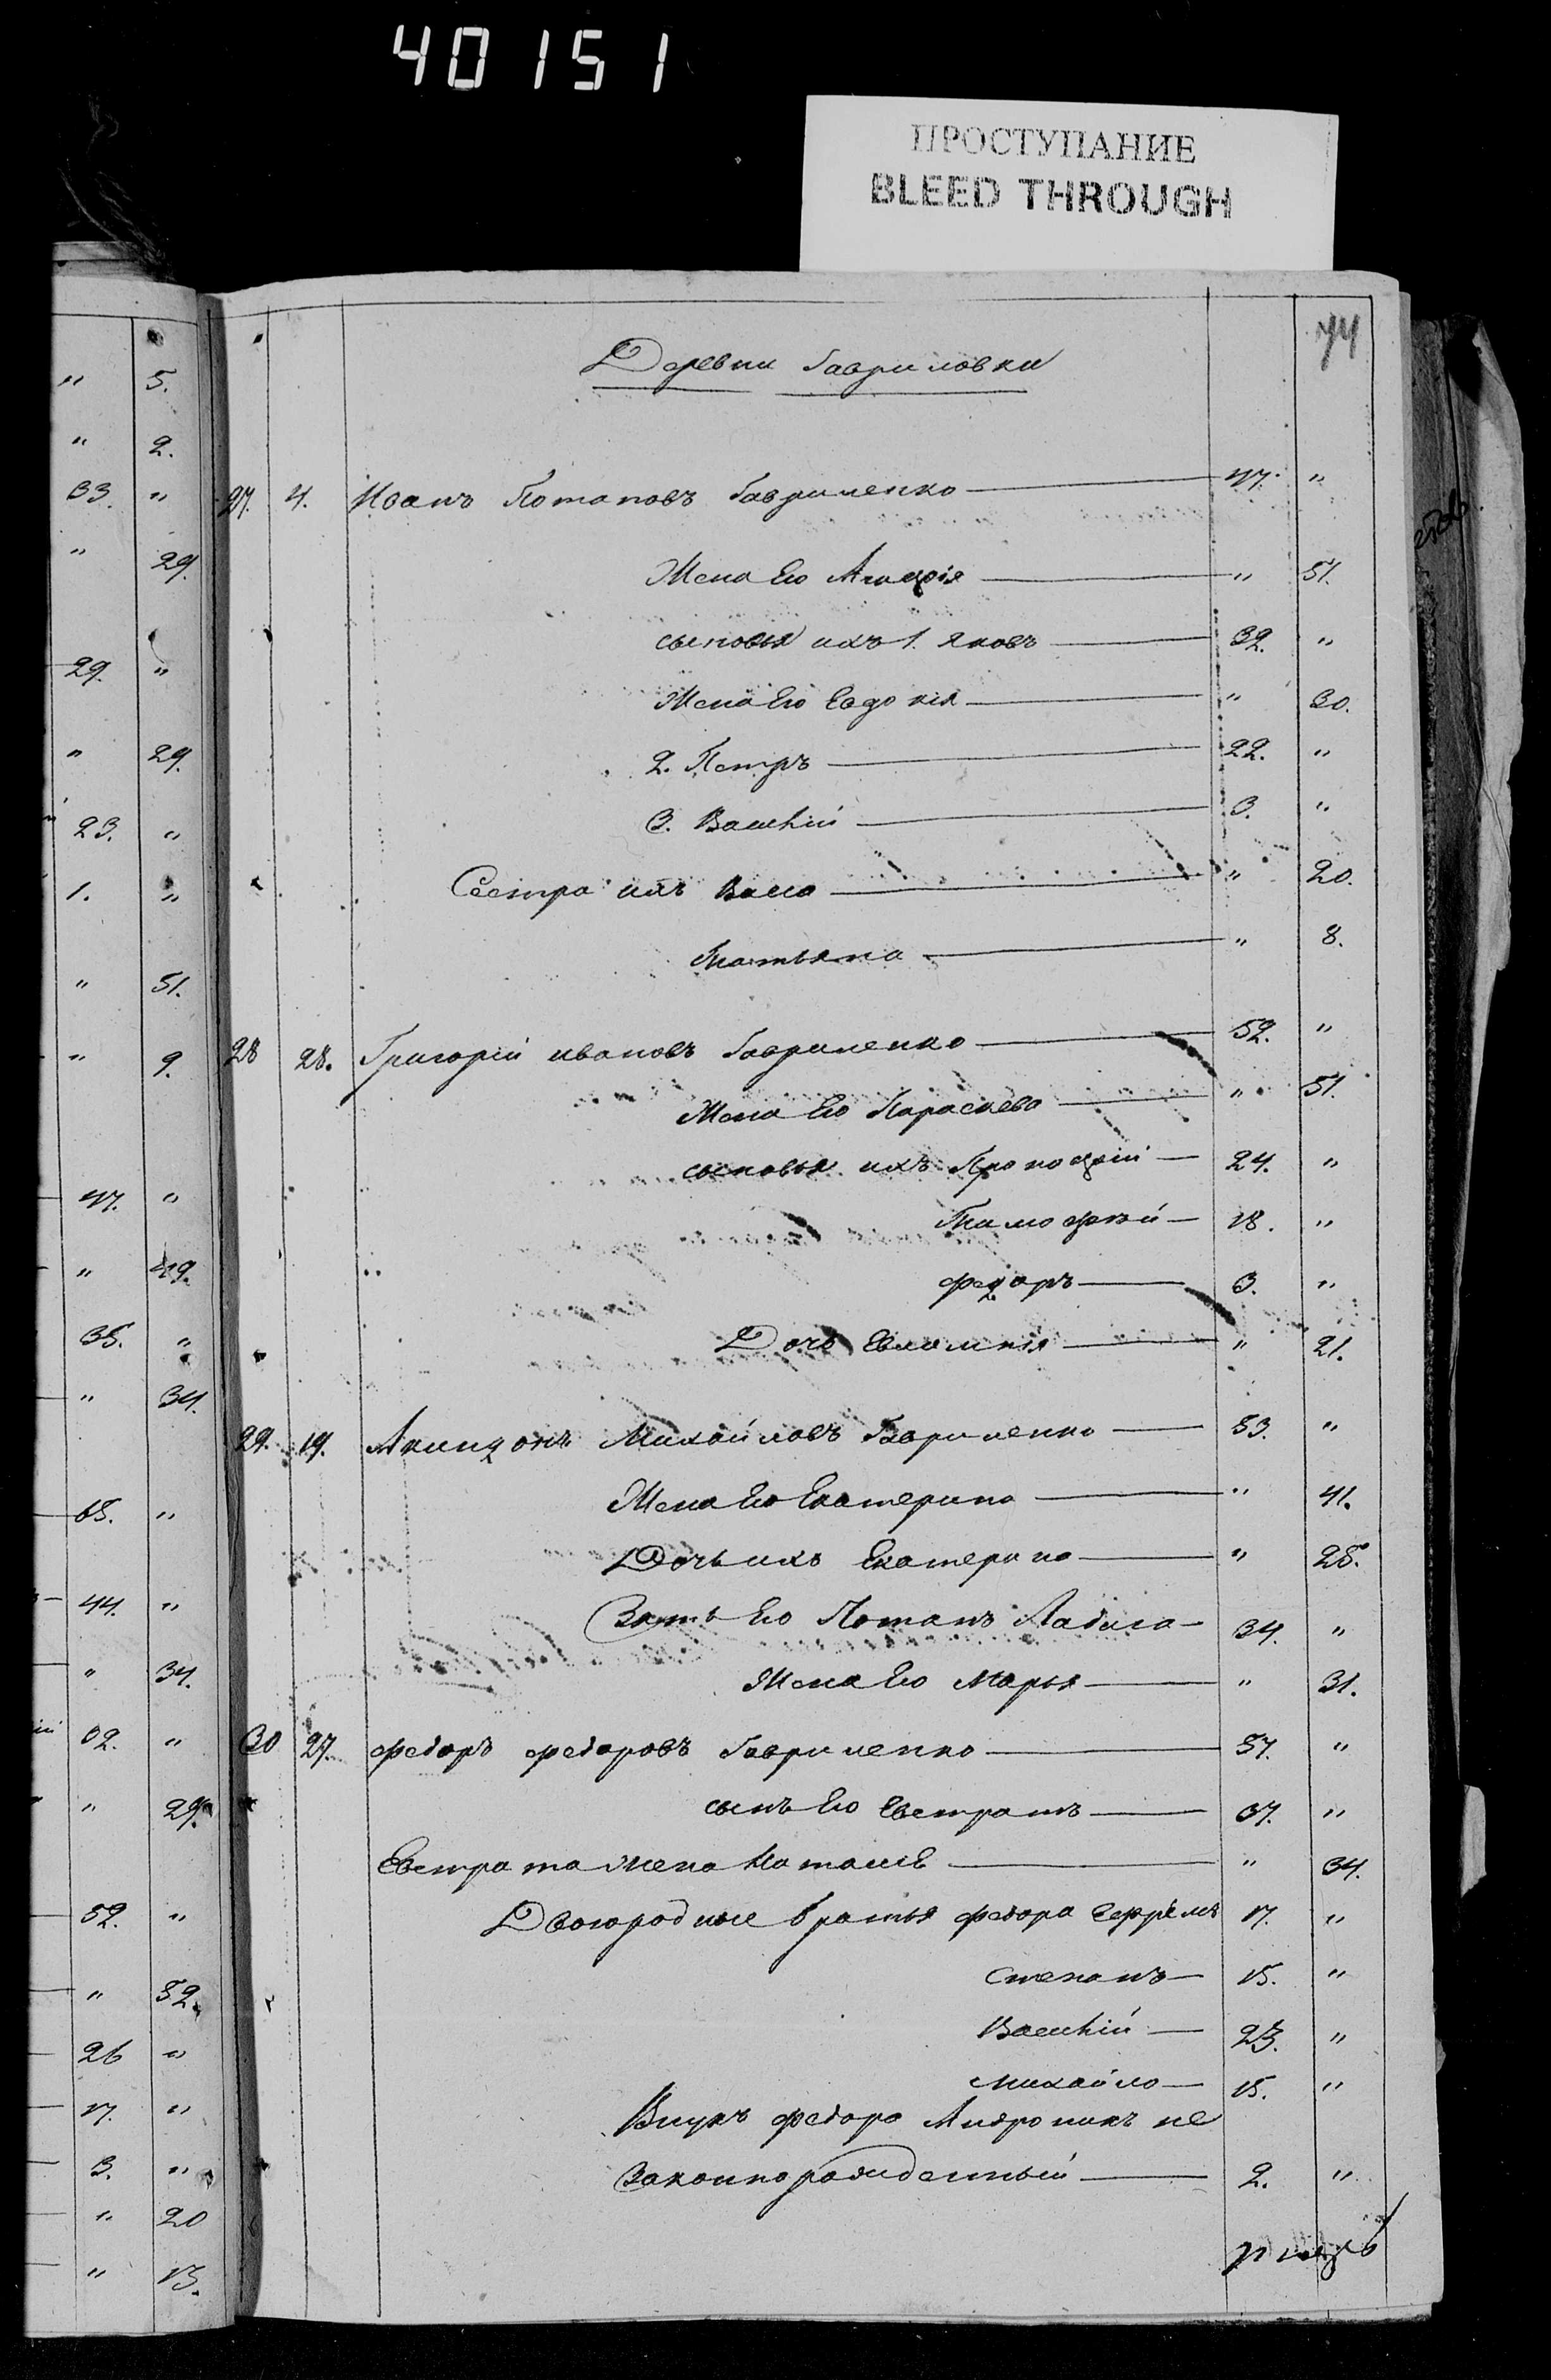 40151
ПРОСТУПАНИЕ
BLEED THROUGH
74
Деревни Гавриловки
27. 4. Иванъ Потаповъ Гавриленко 47. "
Жена Его Агафія " 51.
сыновья ихъ 1. Яковъ 32. "
Жена Его Евдокія " 30.
2. Петръ 22. "
3. Василій 3. "
Сестра ихъ Васса " 20.
Татьяна " 8.
28 28. Григорій ивановъ Гавриленко 52. "
Жена Его Параскева " 51.
сыновья ихъ Прокофій 24. "
Тимофей 18. "
федоръ 3. "
Дочь Евгенія " 21.
29. 19. Акиндонъ Михайловъ Гавриленко 53. "
Жена Его Екатерина " 41.
Дочь ихъ Екатерина " 28.
Зять Его Потапъ 34. "
Жена Его Марья " 31.
30 27. федоръ федоровъ Гавриленко 57. "
сынъ Его Евстратъ 37. "
Евстрата жена Наталія " 34.
Двоюродные братья федора Ефремъ 17. "
Степанъ 15. "
Василій 23. "
Михайло 15. "
Внукъ федора Андроникъ не
законнорожденный 2. "
" 5.
" 2.
33. "
" 29.
29. "
" 29.
23. "
1. "
" 51.
" 9.
47. "
" 49.
35. "
" 34.
65. "
44. "
" 34.
"
" 29.
52. "
" 52.
26 "
17. "
3. "
" 20
" 15.